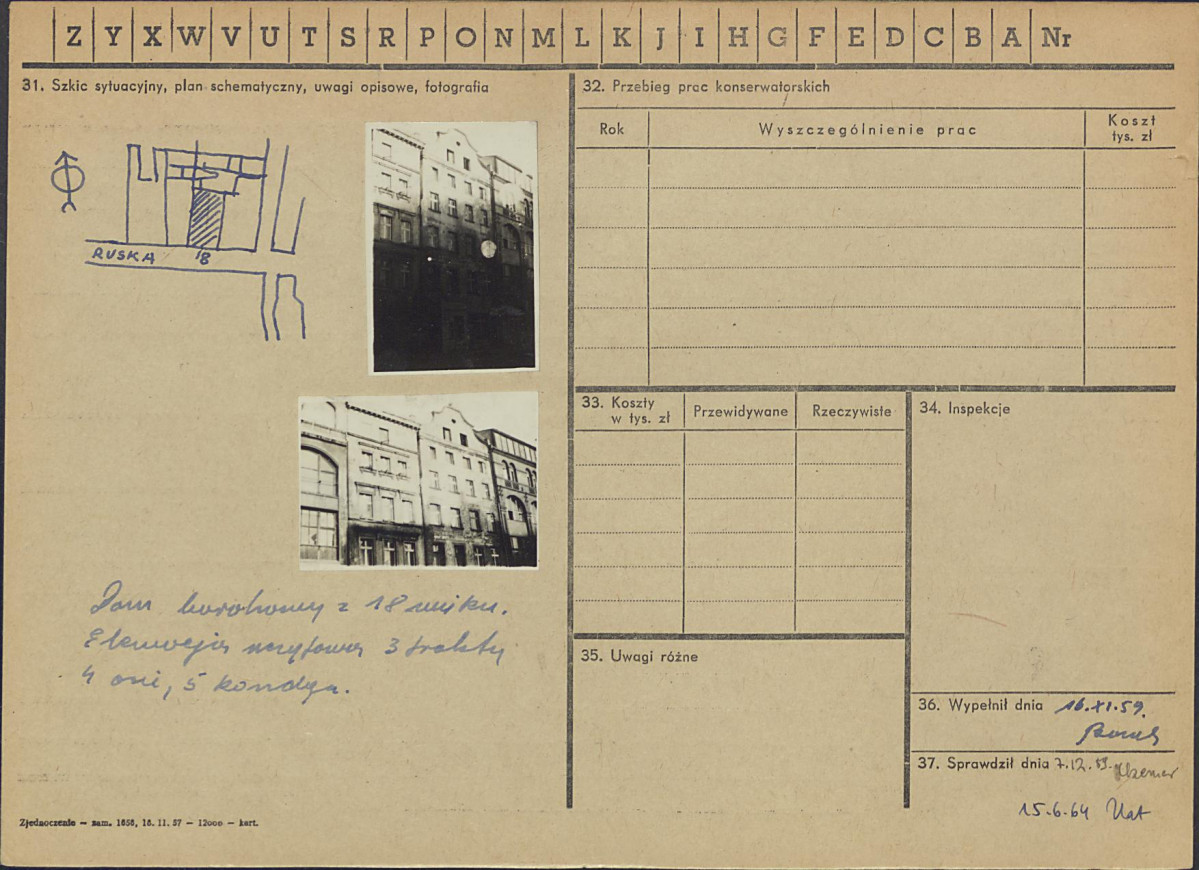 Z Y X W V U T S R P O N M L K J I H G F E D C B A Nr
31. Szkic sytuacyjny, plan schematyczny, uwagi opisowe, fotografia
RUSKA 18
Dom barokowy z 18 wieku.
Elewacja szczytowa 3 trakty
4 osie, 5 kondyg.
Zjednoczenie — zam. 1658, 18. 11. 57 — 12000 — kart.
32. Przebieg prac konserwatorskich
Rok
Wyszczególnienie prac
Koszt
tys. zł
33. Koszty
w tys. zł
Przewidywane
Rzeczywiste
34. Inspekcje
35. Uwagi różne
36. Wypełnił dnia 16.XI.59.
37. Sprawdził dnia 7.12.59.
15.6.64